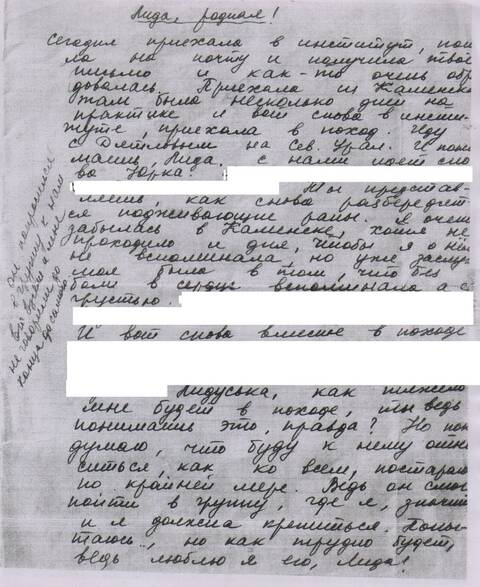 Лида, родная!
Сегодня приехала в институт, пош
ла на почту и получила твое
письмо и как-то очень обра
довалась. Приехала из Каменска
там была несколько дней на
практике и вот снова в инсти-
туте, приехала в поход. Иду
с Дятловым на Сев. Урал. И пони
маешь, Лида, с нами идет сно
ва Юрка.
Ты представ-
ляешь, как снова разбередят
ся подживающие раны. Я очень
забылась в Каменске, хотя не
проходило и дня, чтобы я о нем
не вспоминала, но уже заслу
моя была в том, что без
боли в сердце вспоминала а с
грустью.
И вот снова вместе в походе
Лидуська, как тяжело
мне будет в походе, ты ведь
понимаешь это, правда? Но
думаю, что буду к нему отно
ситься, как ко всем, постараюсь
по крайней мере. Ведь он смог
пойти в группу, где я, значит
и я должна крепиться.
таюсь.., но как трудно будет,
ведь люблю я его, Лида!
он попросился
в группу к нам
не говорили до
конца до самого